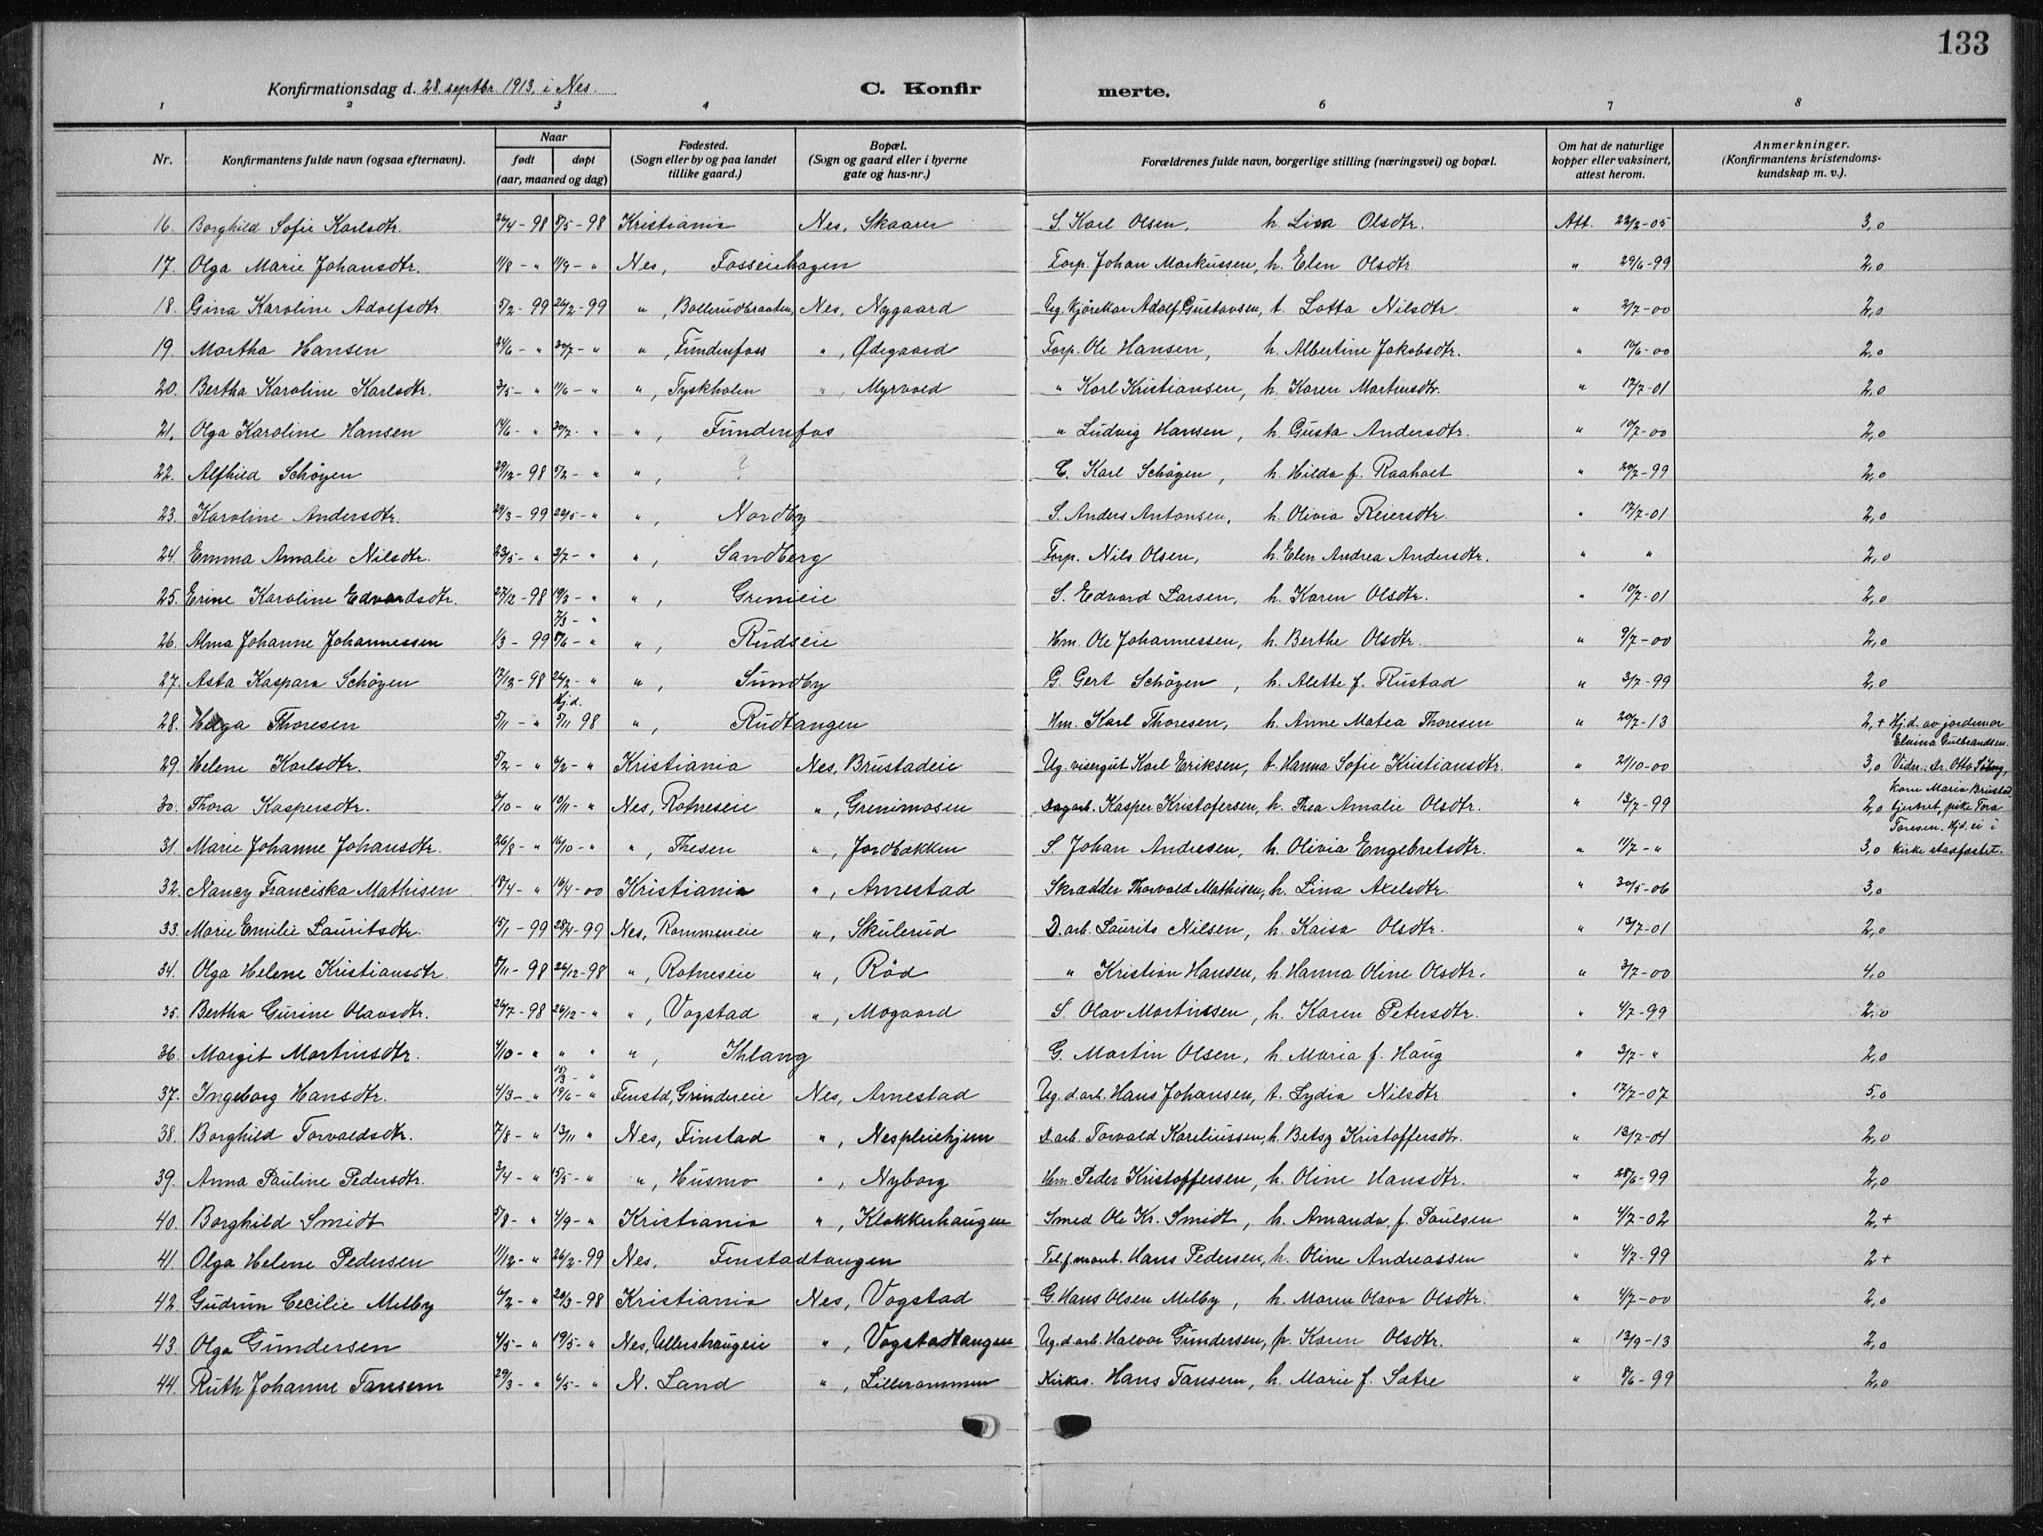 133
Konfirmationsdag d. 28. septbr 1913, i Nes.
C. Konfir merte.
1 2 3 4 6 7 8
Nr. Konfirmantens fulde navn (ogsaa efternavn). Naar født døpt (aar, maaned og dag) Fødested. (Sogn eller by og paa landet tillike gaard.) Bopæl. (Sogn og gaard eller i byerne gate og hus-nr.) Forældrenes fulde navn, borgerlige stilling (næringsvei) og bopæl. Om hat de naturlige kopper eller vaksinert, attest herom. Anmerkninger. (Konfirmantens kristendoms-kundskap m. v.).
16. Borghild Sofie Karlsdtr. 26/4 - 98 8/5 - 98 Kristiania Nes, Skaarer S. Karl Olsen, h. Lisa Olsdtr. Att. 22/2-05 3,0
17. Olga Marie Johansdtr. 11/8 - " 11/9 - " Nes, Fosseiehagen Forp. Johan Markussen, h. Elen Olsdtr " 29/6-99 2,0
18. Gina Karoline Adolfsdtr 5/2 - 99 26/2 - 99 " , Bollerudbraaten, Nes, Nygaard Ug. kjørekar Adolf Gustavsen, t. Lotta Nilsdtr. " 2/7-00 2,0
19. Martha Hansen 24/6 - " 30/7 - " " , Fundenfoss " , Ødegaard Forp. Ole Hansen, h. Albertine Jakobsdtr. " 10/6-00 2,0
20. Bertha Karoline Karlsdtr. 3/5 - " 11/6 - " " , Tyskholen " , Myrvold " Karl Kristiansen, h. Karen Martinsdtr. " 17/7-01 2,0
21. Olga Karoline Hansen 14/6 - " 30/7 - " " , Fundenfos " Ludvig Hansen, h. Gusta Andersdtr. " 10/7-00 2,0
22. Alfhild Schøyen 29/12 - 98 5/2 - " " , ? C. Karl Schøyen, h. Hilda f. Raaholt " 20/7-99 2,0
23. Karoline Andersdtr. 29/3 - 99 22/5 - " " , Nordby S. Anders Antonsen, h. Olivia Reiersdtr. " 17/7-01 2,0
24. Emma Amalie Nilsdtr. 23/5 - " 2/7 - " " , Sandberg Forp. Nils Olsen, h. Elen Andrea Andersdtr. " " 2,0
25. Erine Karoline Edvardsdtr. 27/12 - 98 19/3 - " " , Greneie S. Edvard Larsen, h. Karen Olsdtr. " 10/7-01 2,0
7/3 - "
26. Alma Johanne Johannessen 1/3 - 99 8/6 - " " , Rudseie Hm. Ole Johannessen, h. Berthe Olsdtr. " 9/7-00 2,0
27. Asta Kaspara Schøyen 17/12 - 98 26/2 - " " , Sundby G. Gert Schøyen, h. Alette f. Rustad " 3/7-99 2,0
Hj.d.
28. Helga Thoresen 5/11 - " 5/11 98 " , Rudtangen Hm. Karl Thoresen, h. Anne Matea Thoresen " 20/7-13 2,+ Hj.d. av jordemor
Elvina Gulbrandsen.
29. Helene Karlsdtr. 5/2 - " 6/2 - " Kristiania Nes, Brustadeie Ug. visergut Karl Eriksen, t. Hanna Sofie Kristiansdtr. " 21/10-00 3,0 Vidn. dr. Otto
kone Maria Brustad
30. Thora Kaspersdtr. 6/10 - " 10/11 - " Nes, Rotneseie " , Grenimosen Dagarb. Kasper Kristofersen, h. Thea Amalie Olsdtr. " 13/7-99 2,0 pike Tora
Toresen. Hj.d. ei i
31. Marie Johanne Johansdtr. 26/8 - " 16/10 - " " , Thesen " , Jordbakken S. Johan Andresen, h. Olivia Engebretsdtr. " 11/7-" 3,0 kirke stadfæstet.
32. Nancy Franciska Mathisen 18/4 - " 16/4 - 00 Kristiania " , Arnestad Skrædder Thorvald Mathisen, h. Lina Axelsdtr. " 30/5-06 3,0
33. Marie Emilie Lauritsdtr. 15/1 - 99 28/4 - 99 Nes, Rommeneie " , Skulerud D. arb. Laurits Nilsen, h. Kaisa Olsdtr. " 13/7-01 2,0
34. Olga Helene Kristiansdtr. 8/11 - 98 26/12 - 98 " , Rotneseie " , Rød " Kristian Hansen, h. Hanna Oline Olsdtr. " 3/7-00 4,0
35. Bertha Gurine Olavsdtr. 26/7 - 98 26/12 - " " , Vogstad " , Mogaard S. Olav Martinssen, h. Karen Petersdtr. " 4/7-99 2,0
36. Margit Martinsdtr. 4/10 - " " " " , Ihlang G. Martin Olsen, h. Maria f. Haug " 3/7-" 2,0
15/3 - "
37. Ingeborg Hansdtr. 4/3 - " 19/6 - " Fenstd, Grindereie Nes, Arnestad Ug. d. arb. Hans Johansen, t. Lydia Nilsdtr. " 17/7-07 5,0
38. Borghild Torvaldsdtr. 7/8 - " 13/11 " Nes, Finstad " , Nespleiehjem D. arb. Torvald Kareliussen, h. Betsy Kristoffersdtr. " 13/7-04 2,0
39. Anna Pauline Pedersdtr. 3/4 - " 15/5 - " " , Husmo " , Nyborg Hm. Peder Kristoffersen, h. Oline Hansdtr. " 28/6-99 2,0
40. Borghild Smidt 5/8 - " 4/9 - " Kristiania " , Klokkerhaugen Smed Ole Kr. Smidt, h. Amanda f. Paulsen " 4/7-02 2,+
41. Olga Helene Pedersen 11/12 - " 26/2 - 99 Nes, Fenstadtangen Telf.mont. Hans Pedersen, h. Oline Andreassen " 4/7-99 2+
42. Gudrun Cecilie Melby 6/2 - " 20/3 - 98 Kristiania Nes, Vogstad G. Hans Olsen Melby, h. Maren Olava Olsdtr. " 4/7-00 2,0
43. Olga Gundersen 4/5 - " 19/5 - " Nes, Ullershaugeie " , Vogstadtangen Ug. d. arb. Halvor Gundersen, p. Karen Olsdtr. " 13/9-13 2,0
44. Ruth Johanne Tansem 29/3 - " 6/5 - " N. Land " , Lillerommen Kirkes. Hans Tansem, h. Marie f. Sætre " 8/6-99 2,0